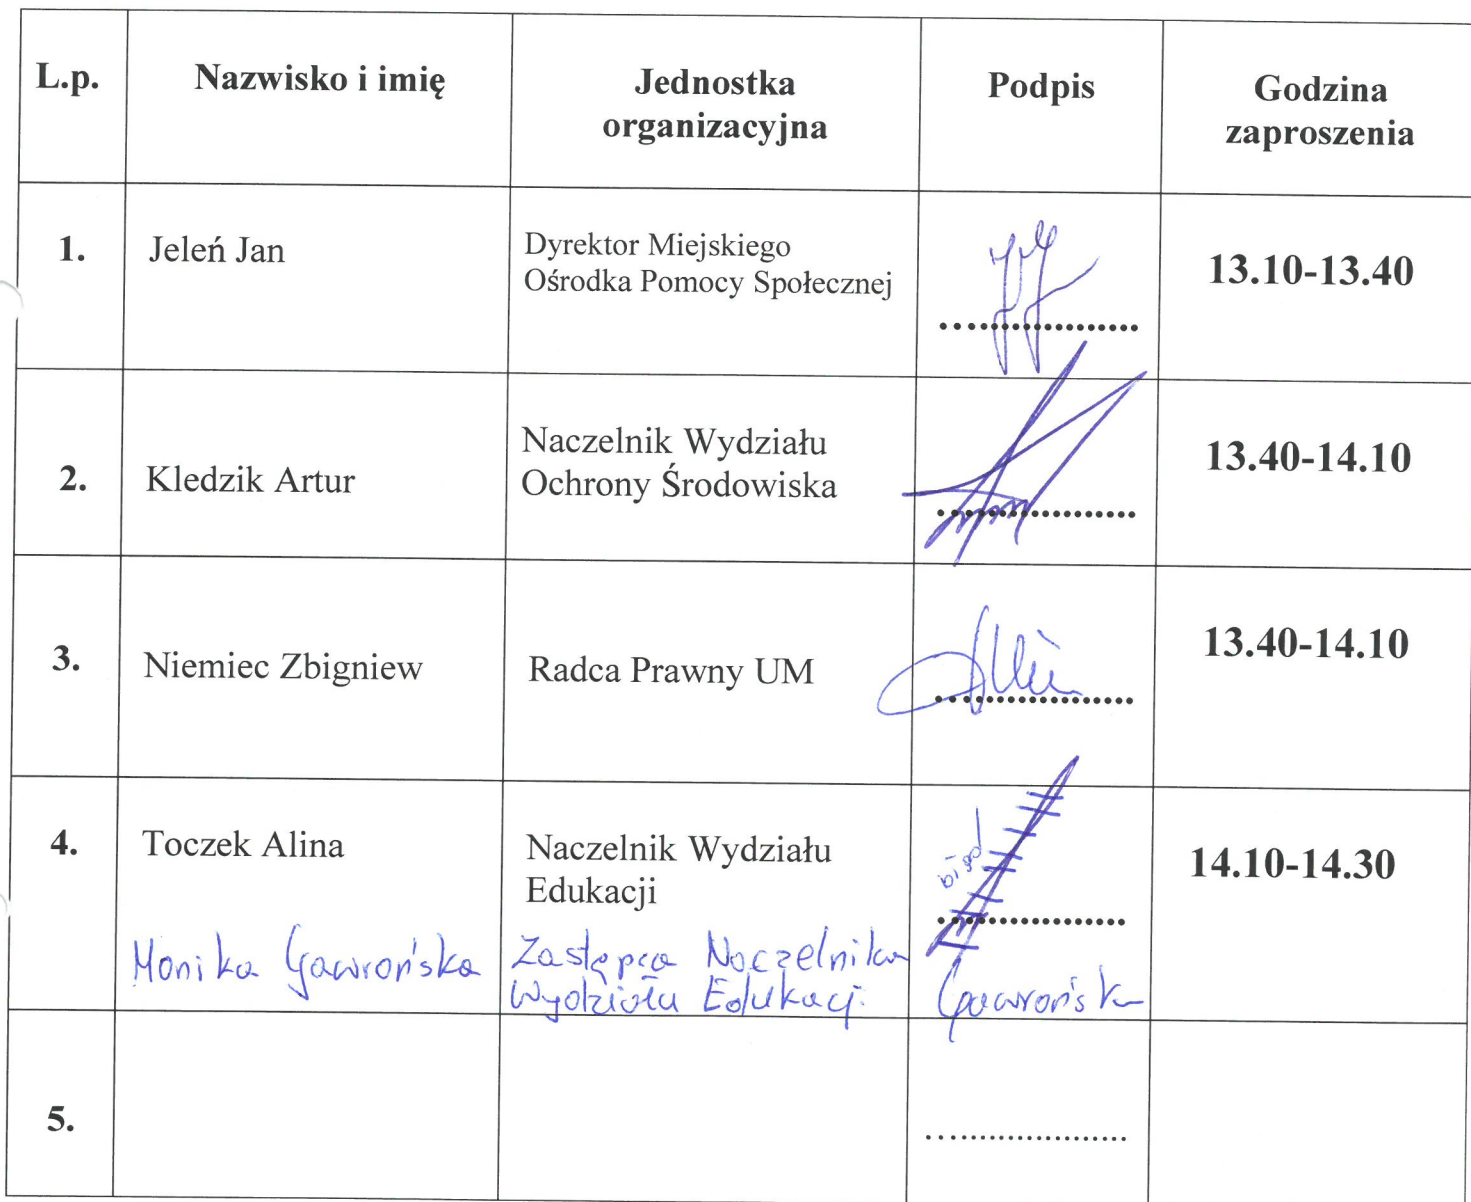 L.p.
Nazwisko i imię
Jednostka
organizacyjna
Podpis
Godzina
zaproszenia
1.
Jeleń Jan
Dyrektor Miejskiego
Ośrodka Pomocy Społecznej
13.10-13.40
2.
Kledzik Artur
Naczelnik Wydziału
Ochrony Środowiska
13.40-14.10
3.
Niemiec Zbigniew
Radca Prawny UM
13.40-14.10
4.
Toczek Alina
Naczelnik Wydziału
Edukacji
14.10-14.30
Monika Gawrońska
Zastępca Naczelnika
Wydziału Edukacji
Gawrońska
5.